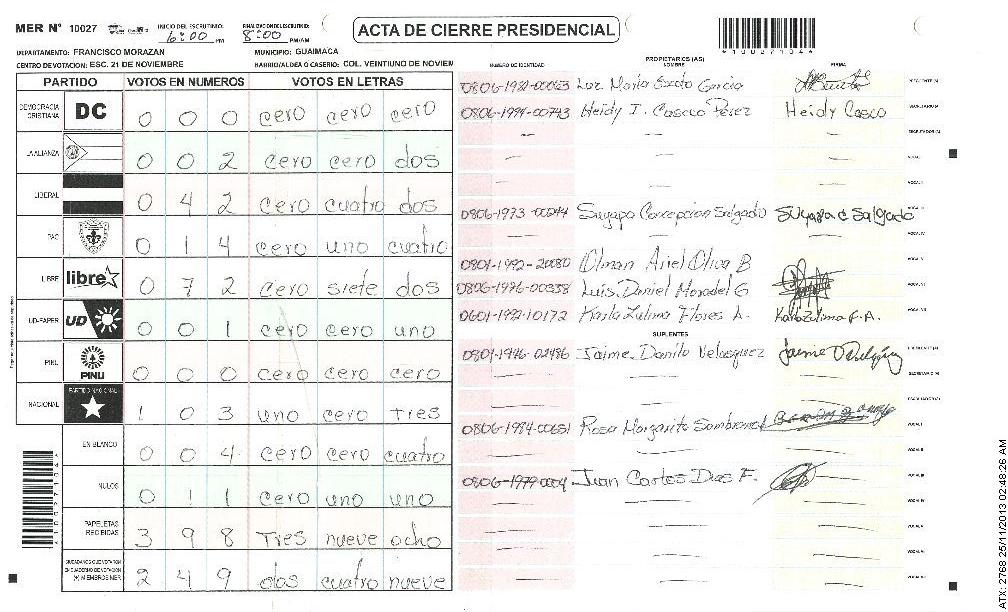 MER N° 10027 INICIO DEL ESCRUTINIO: 6:00 PM FINALIZACION ESCRUTINIO: 8:00 PM/AM
ACTA DE CIERRE PRESIDENCIAL
DEPARTAMENTO: FRANCISCO MORAZAN MUNICIPIO: GUAIMACA
CENTRO DE VOTACION: ESC. 21 DE NOVIEMBRE BARRIO/ALDEA O CASERIO: COL. VEINTIUNO DE NOVIEM
PARTIDO VOTOS EN NUMEROS VOTOS EN LETRAS
DEMOCRACIA CRISTIANA DC 0 0 0 cero cero cero
LA ALIANZA 0 0 2 cero cero dos
LIBERAL 0 4 2 cero cuatro dos
PAC 0 1 4 cero uno cuatro
LIBRE libre 0 7 2 cero siete dos
UD-FAPER UD 0 0 1 cero cero uno
PINU PINU 0 0 0 cero cero cero
NACIONAL PARTIDO NACIONAL 1 0 3 uno cero tres
EN BLANCO 0 0 4 cero cero cuatro
NULOS 0 1 1 cero uno uno
PAPELETAS RECIBIDAS 3 9 8 Tres nueve ocho
CIUDADANOS QUE VOTARON EN CUADERNO DE VOTACION (+) MIEMBROS MER 2 4 9 dos cuatro nueve
PROPIETARIOS (AS)
NUMERO DE IDENTIDAD NOMBRE FIRMA
Luz Maria García PRESIDENTE (A)
0806-1994-00743 Heidy J. Casco Pérez Heidy Casco SECRETARIO (A)
ESCRUTADOR (A)
VOCAL I
VOCAL II
0806-1973-00244 Suyapa Concepcion Salgado Suyapa C Salgado VOCAL III
VOCAL IV
0801-1992-20080 Olman Ariel Oliva B VOCAL V
0806-1976-00338 Luis Daniel Moradel G VOCAL VI
0601-1992-10172 Karla Zulima Flores A. Karla Zulima F.A. VOCAL VII
SUPLENTES
0801-1946-02486 Jaime Danilo Velasquez PRESIDENTE (A)
SECRETARIO (A)
ESCRUTADOR (A)
0806-1984-00651 Rosa Margarita VOCAL I
VOCAL II
Juan Carlos Dias F. VOCAL III
VOCAL IV
VOCAL V
VOCAL VI
VOCAL VII
ATX: 2768 25/11/2013 02:48:26 AM